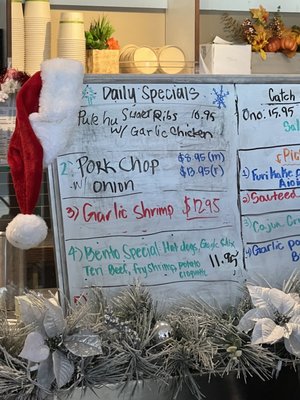 Daily Specials
Pulehu Short Ribs 10.95
w/ Garlic Chicken
2) Pork Chop $8.95(m)
w/ onion $13.95(r)
3) Garlic Shrimp $12.95
4) Bento Special Hot dogs, Garlic Chix
Teri Beef, fry Shrimp, potato
croquette 11.95
Catch
Ono 15.95
1) Furikake
2) Sauteed
3) Cajun
4) Garlic